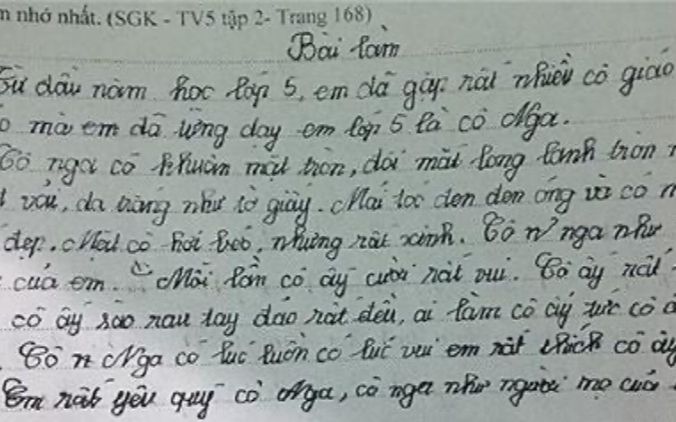 n nhớ nhất. (SGK - TV5 tập 2- Trang 168)
Bài làm
Từ đầu năm học lớp 5, em đã gặp rất nhiều cô giáo
mà em đã từng dạy em lớp 5 là cô Nga.
Cô nga có khuôn mặt tròn, đôi mắt long lanh tròn
vẩu, da trắng như tờ giấy. Mái tóc đen đen óng và có
đẹp. Mặt cô hơi béo, nhưng rất xinh. Cô n nga như
của em. Mỗi lần cô ấy cười rất vui. Cô ấy rất
cô ấy xào rau tay đảo rất đều, ai làm cô ấy tức cô
Cô n Nga có lúc luôn có lúc vui em rất thích cô ấy
Em rất yêu quý cô Nga, cô nga như người mẹ của